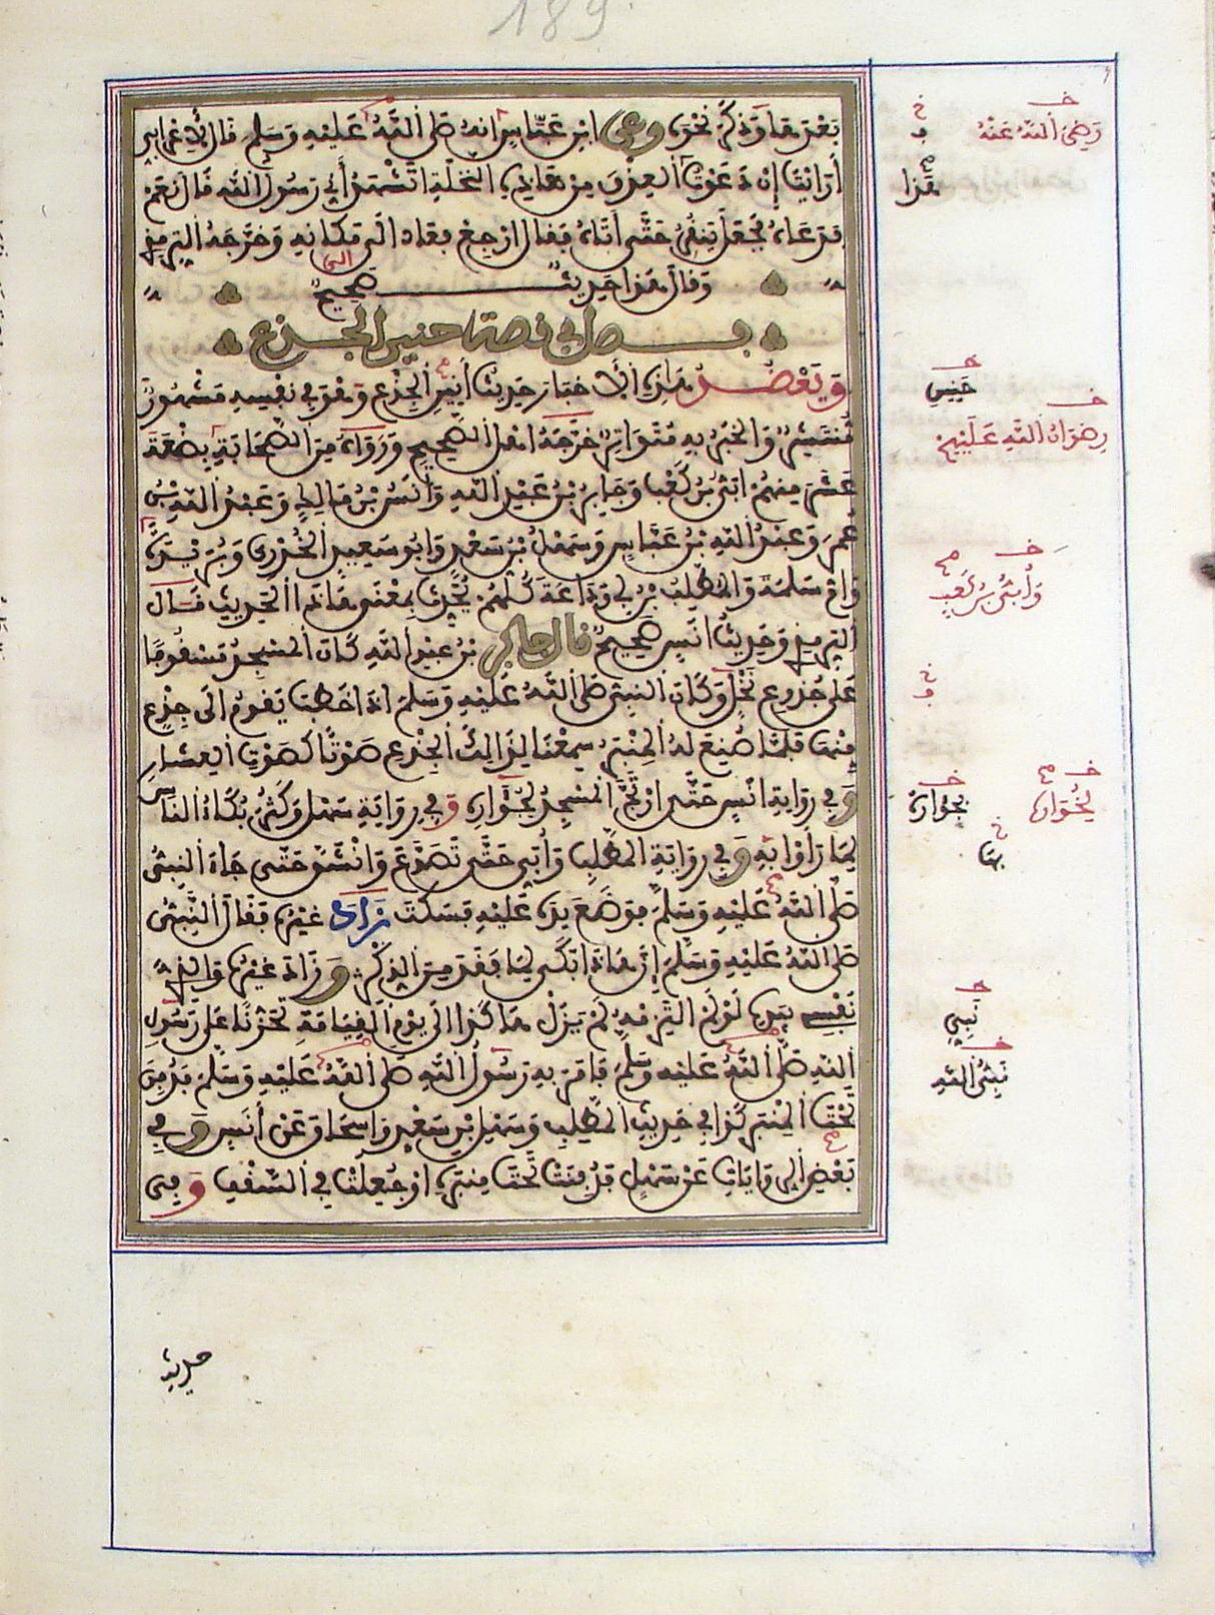 189
بعدها وذكر نحوه وعن ابن عباس انه صلى الله عليه وسلم قال لاعرابي
أرأيت إن دعوت العذق من هاذه النخلة اتشهد أني رسول الله قال نعم
فدعاه فجعل ينقز حتى أتاه فقال ارجع فعاد الى مكانه وخرجه الترمذي
وقال هذا حديث صحيح
فصل في قصة حنين الجذع
ويعضد هذه الاخبار حديث أنين الجذع وهو في نفسه مشهور
منتشر والخبر به متواتر خرجه اهل الصحيح ورواه من الصحابة بضعة
عشر منهم ابي بن كعب وجابر بن عبد الله وانس بن مالك وعبد الله بن
عمر وعبد الله بن عباس وسهل بن سعد وابو سعيد الخدري وبريدة
وام سلمة والمطلب بن ابي وداعة كلهم يحدث بمعنى هاذا الحديث قال
الترمذي وحديث انس صحيح قال جابر بن عبد الله كان المسجد مسقوفا
على جذوع نخل وكان النبي صلى الله عليه وسلم اذا خطب يقوم الى جذع
منها فلما صنع له المنبر سمعنا لذالك الجذع صوتا كصوت العشار
وفي رواية انس حتى ارتج المسجد لخواره وفي رواية سهل وكثر بكاء الناس
لما رأوا به وفي رواية المطلب وأبي حتى تصدع وانشق حتى جاء النبي
صلى الله عليه وسلم فوضع يده عليه فسكت زاد غيره فقال النبي
صلى الله عليه وسلم إن هاذا بكى لما فقد من الذكر وزاد غيره والذي
نفسي بيده لو لم التزمه لم يزل هاكذا الى يوم القيامة تحزنا على رسول
الله صلى الله عليه وسلم فامر به رسول الله صلى الله عليه وسلم فدفن
تحت المنبر كذا في حديث المطلب وسهل بن سعد واسحاق عن أنس وفي
بعض الروايات عن سهل فدفنت تحت منبره او جعلت في السقف وفي
رضي الله عنه
هذا
حنين
رضوان الله عليهم
وأبي بن كعب
لخواره
بجواره
بها
نبي
نبي الله
حديث